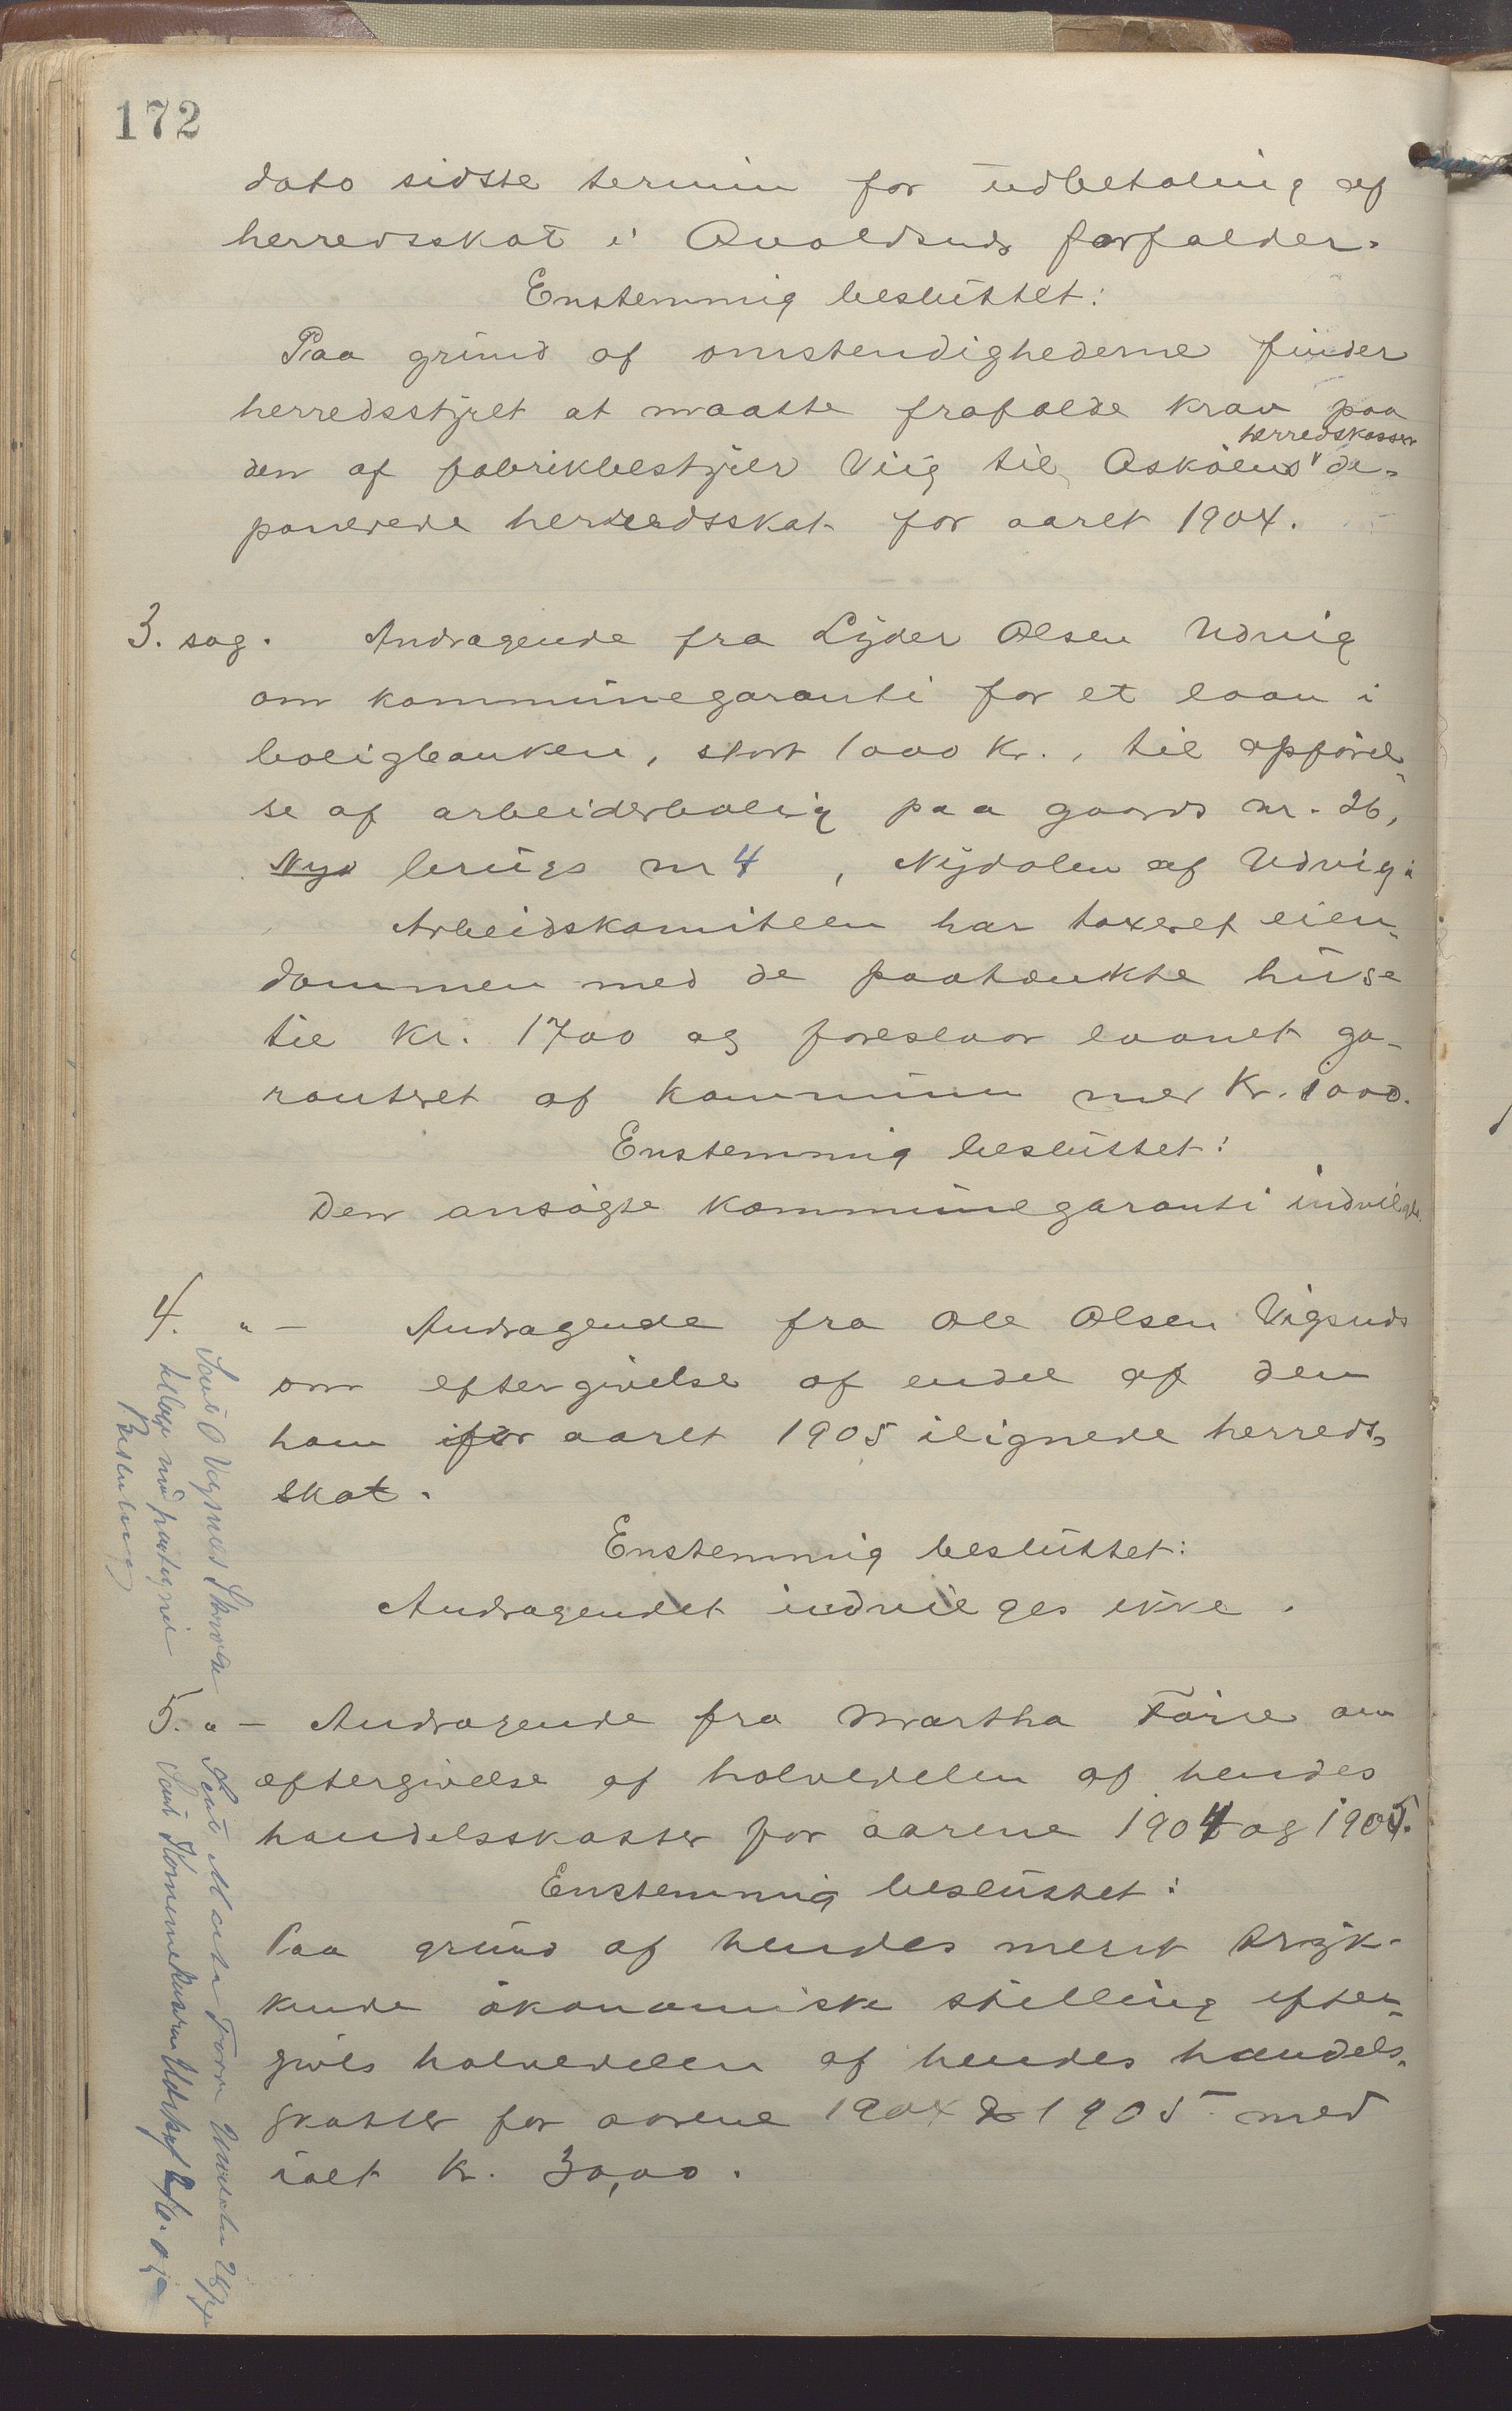 172
dato sidste termin for udbetaling af
herredsskat i Avaldsnds forfalder.
Enstemmig besluttet:
Paa grund af omstendighederne finder
herredsstyret at maatte frafalde krav paa
herredskasser
den af fabrikbestyrer Viig til Askøens de-
ponerede herredsskat for aaret 1904.
3. sag. Andragende fra Lyder Olsen Udvig
om kommunegaranti for et laan i
boligbanken, stort 1000 Kr., til opførel-
se af arbeiderbolig paa gaards nr. 26,
Nyd brugs nr 4, Nydalen af Udvig.
Arbeidskomiteen har taxeret eien-
dommen med de paatænkte huse
til Kr. 1700 og foreslaar laanet ga-
ranteret af kommunen med Kr. 1000.
Enstemmig besluttet:
Den ansøgte kommunegaranti indvilges.
4. " – Andragende fra Ole Olsen Vigsnds
om eftergivelse af endel af den
ham for aaret 1905 ilignede herreds-
skat.
Enstemmig besluttet:
Andragendet indvilges ikke.
5. " – Andragende fra Martha Førre om
eftergivelse af halvedelen af hendes
handelsskatter for aarene 1904 og 1905.
Enstemmig besluttet:
Paa grund af hendes meget tryk-
kende økonomiske stilling efter-
gives halvedelen af hendes handels-
skatter for aarene 1904 & 1905 med
ialt Kr. 30,00.